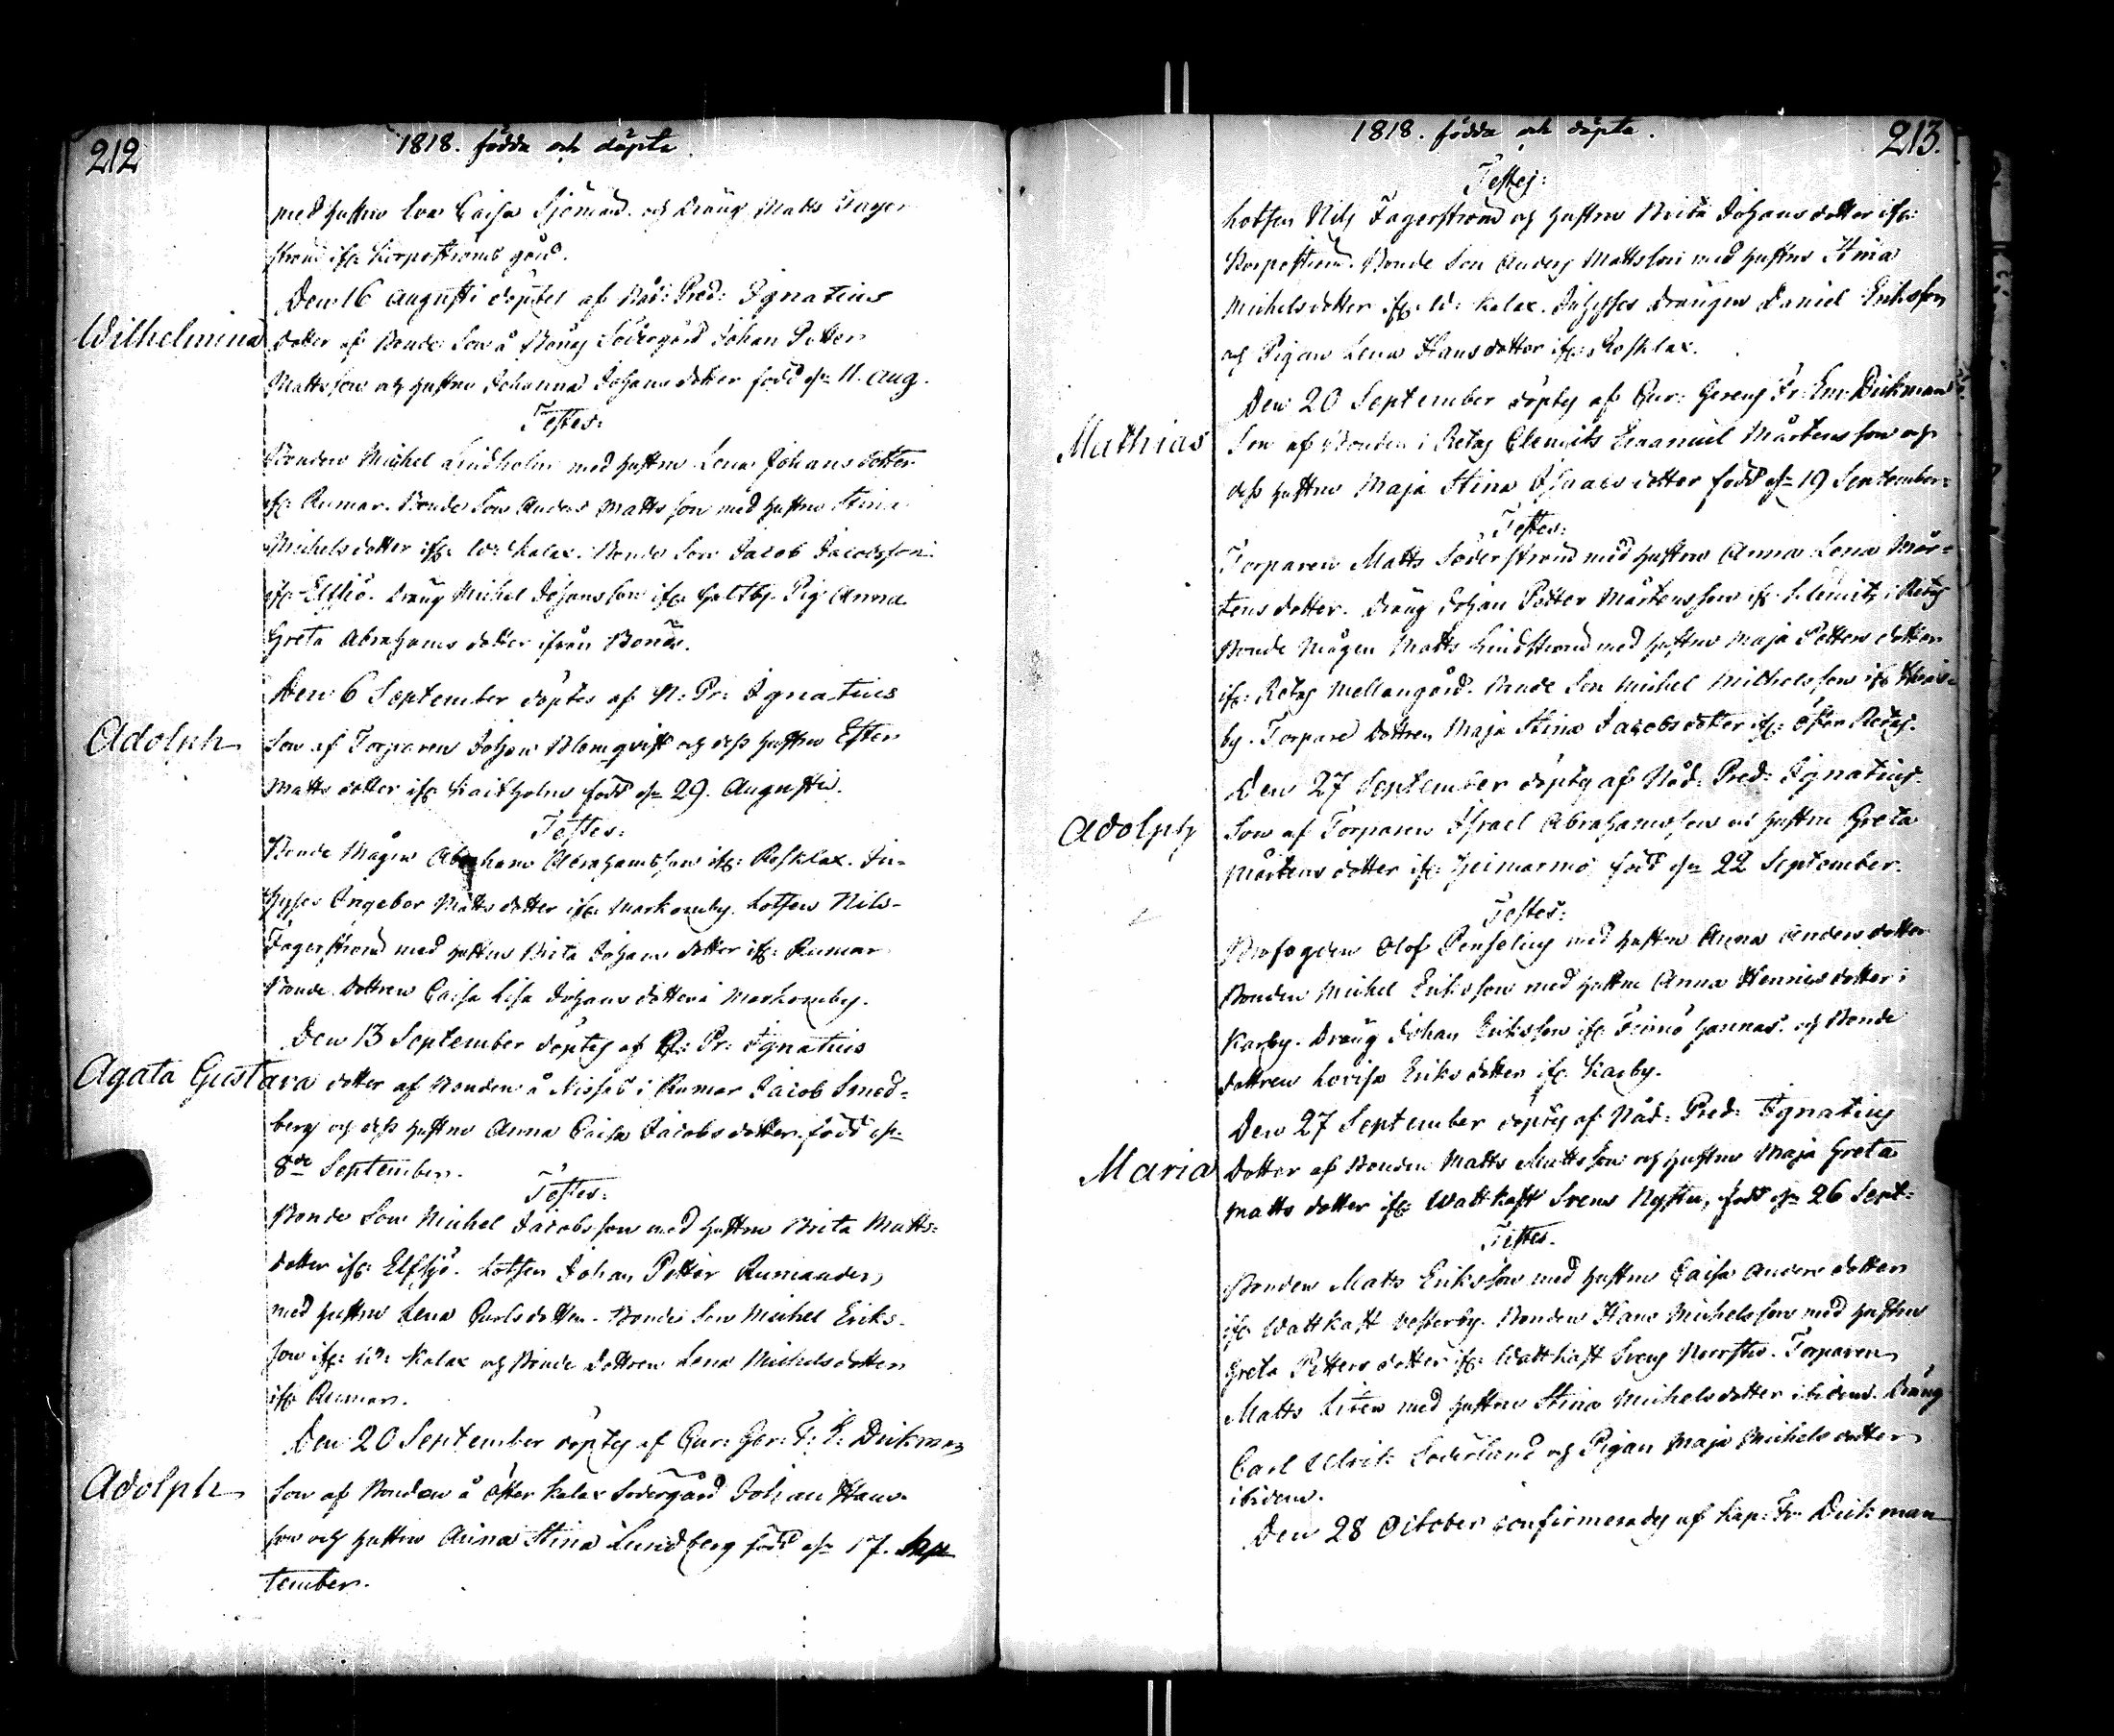 212
1818. födda och döpta.
med hustru Eva Caisa Sjöman och Dräng Matts Fager
ström ifr: Korpoströms gård.
Den 16 augusti döptes af Nåd: Pred: Ignatius
Wilhelmina dotter af Bonde Son å Bonäs Södergård Johan Petter
Mattsson och hustru Johanna Johansdotter född d: 11. aug.
Testes:
Bonden Michel Lindholm med hustru Lena Johans dotter
ifr: Rumar. Bonde Son Anders Matts son med hustru Stina
Michels dotter ifr: W: Kalax. Bonde Son Jacob Jacobsson
ifr: Elfsjö. Dräng Michel Johansson ifr: Galtby. Pig: Anna
Greta Abrahams dotter ifrån Bonäs.
Den 6 September döptes af N: Pr: Ignatius
Adolph Son af Torparen Johan Blomqvist och dess hustru Ester
Matts dotter ifr: Kaitholm född d: 29. Augusti.
Testes:
Bonde Mågen Abraham Abrahamsson ifr: Rosklax. In-
hyses Ingebor Matts dotter ifr: Markomby. Lotsen Nils
Fagerström med hustru Brita Johans dotter ifr: Rumar
Bonde dottren Caisa Lisa Johans dotter i Markomby.
Den 13 September döptes af N: Pr: Ignatius
Agata Gustava dotter af Bonden å Nissas i Rumar Jacob Smed-
berg och dess hustru Anna Caisa Jacobs dotter född d:
8de September.
Testes:
Bonde Son Michel Jacobsson med hustru Brita Matts-
dotter ifr: Elfsjö. Lotsen Johan Petter Rumander
med hustru Lena Carlsdotter. Bonde Son Michel Eriks-
son ifr: W: Kalax och Bonde dottren Lena Michelsdotter
ifr: Rumar.
Den 20 September döptes af Cur: Ger: F: E: Dickman
Adolph Son af Bonden å Öster Kalax Södergård Johan Hans-
son och hustru Anna Stina Lundberg född d: 17. Sep
tember.
213.
1818. födda och döpta.
Testes:
Lotsen Nils Fagerström och hustru Brita Johans dotter ifr:
Korpoström. Bonde Son Anders Mattsson med hustru Stina
Michels dotter ifr: W: Kalax. Inhyses Drängen Daniel Eriksson
och Pigan Lena Hans dotter ifr: Rosklax.
Den 20 September döptes af Cur: Gerens Fr: Em: Dickman
Mathias Son af Bonden i Retais Clemits Emanuel Mårtensson och
dess hustru Maja Stina Isaacs dotter född d: 19 September.
Testes:
Torparen Matts Söderström med hustru Anna Lena Mår-
tens dotter. Dräng Johan Petter Mårtensson ifr: Clemits i Retais
Bonde Mågen Matts Lindström med hustru Maja Petters dotter
ifr: Retais Mellangård. Bonde Son Michel Michelsson ifr:
by. Torpare dottren Maja Stina Jacobsdotter ifr: Öster Retais.
Den 27 September döptes af Nåd: Pred: Ignatius
Adolph Son af Torparen Israel Abrahamsson och hustru Greta
Mårtens dotter ifr: Heimarmo född d: 22 September.
Testes:
Brofogden Olof Penselius med hustru Anna Anders dotter
Bonden Michel Eriksson med hustru Anna Hennies dotter i
Karby. Dräng Johan Eriksson ifr: Finnö Hannas. och Bonde
dottren Lovisa Eriks dotter ifr: Karby.
Den 27 September döptes af Nåd: Pred: Ignatius
Maria Dotter af Bonden Matts Mattsson och hustru Maja Greta
Matts dotter ifr: Wattkast Svens Nystu, född d: 26 Sept:
Testes.
Bonden Matts Eriksson med hustru Caisa Anders dotter
ifr: Wattkast Vesterby. Bonden Hans Michelsson med hustru
Greta Petters dotter ifr: Wattkast Svens Norrstu. Torparen
Matts Liten med hustru Stina Michelsdotter ibidem. Dräng
Carl Ulrik Söderlund och Pigan Maja Michels dotter
ibidem.
Den 28 October confirmerades af Kap: Fr: Dickman